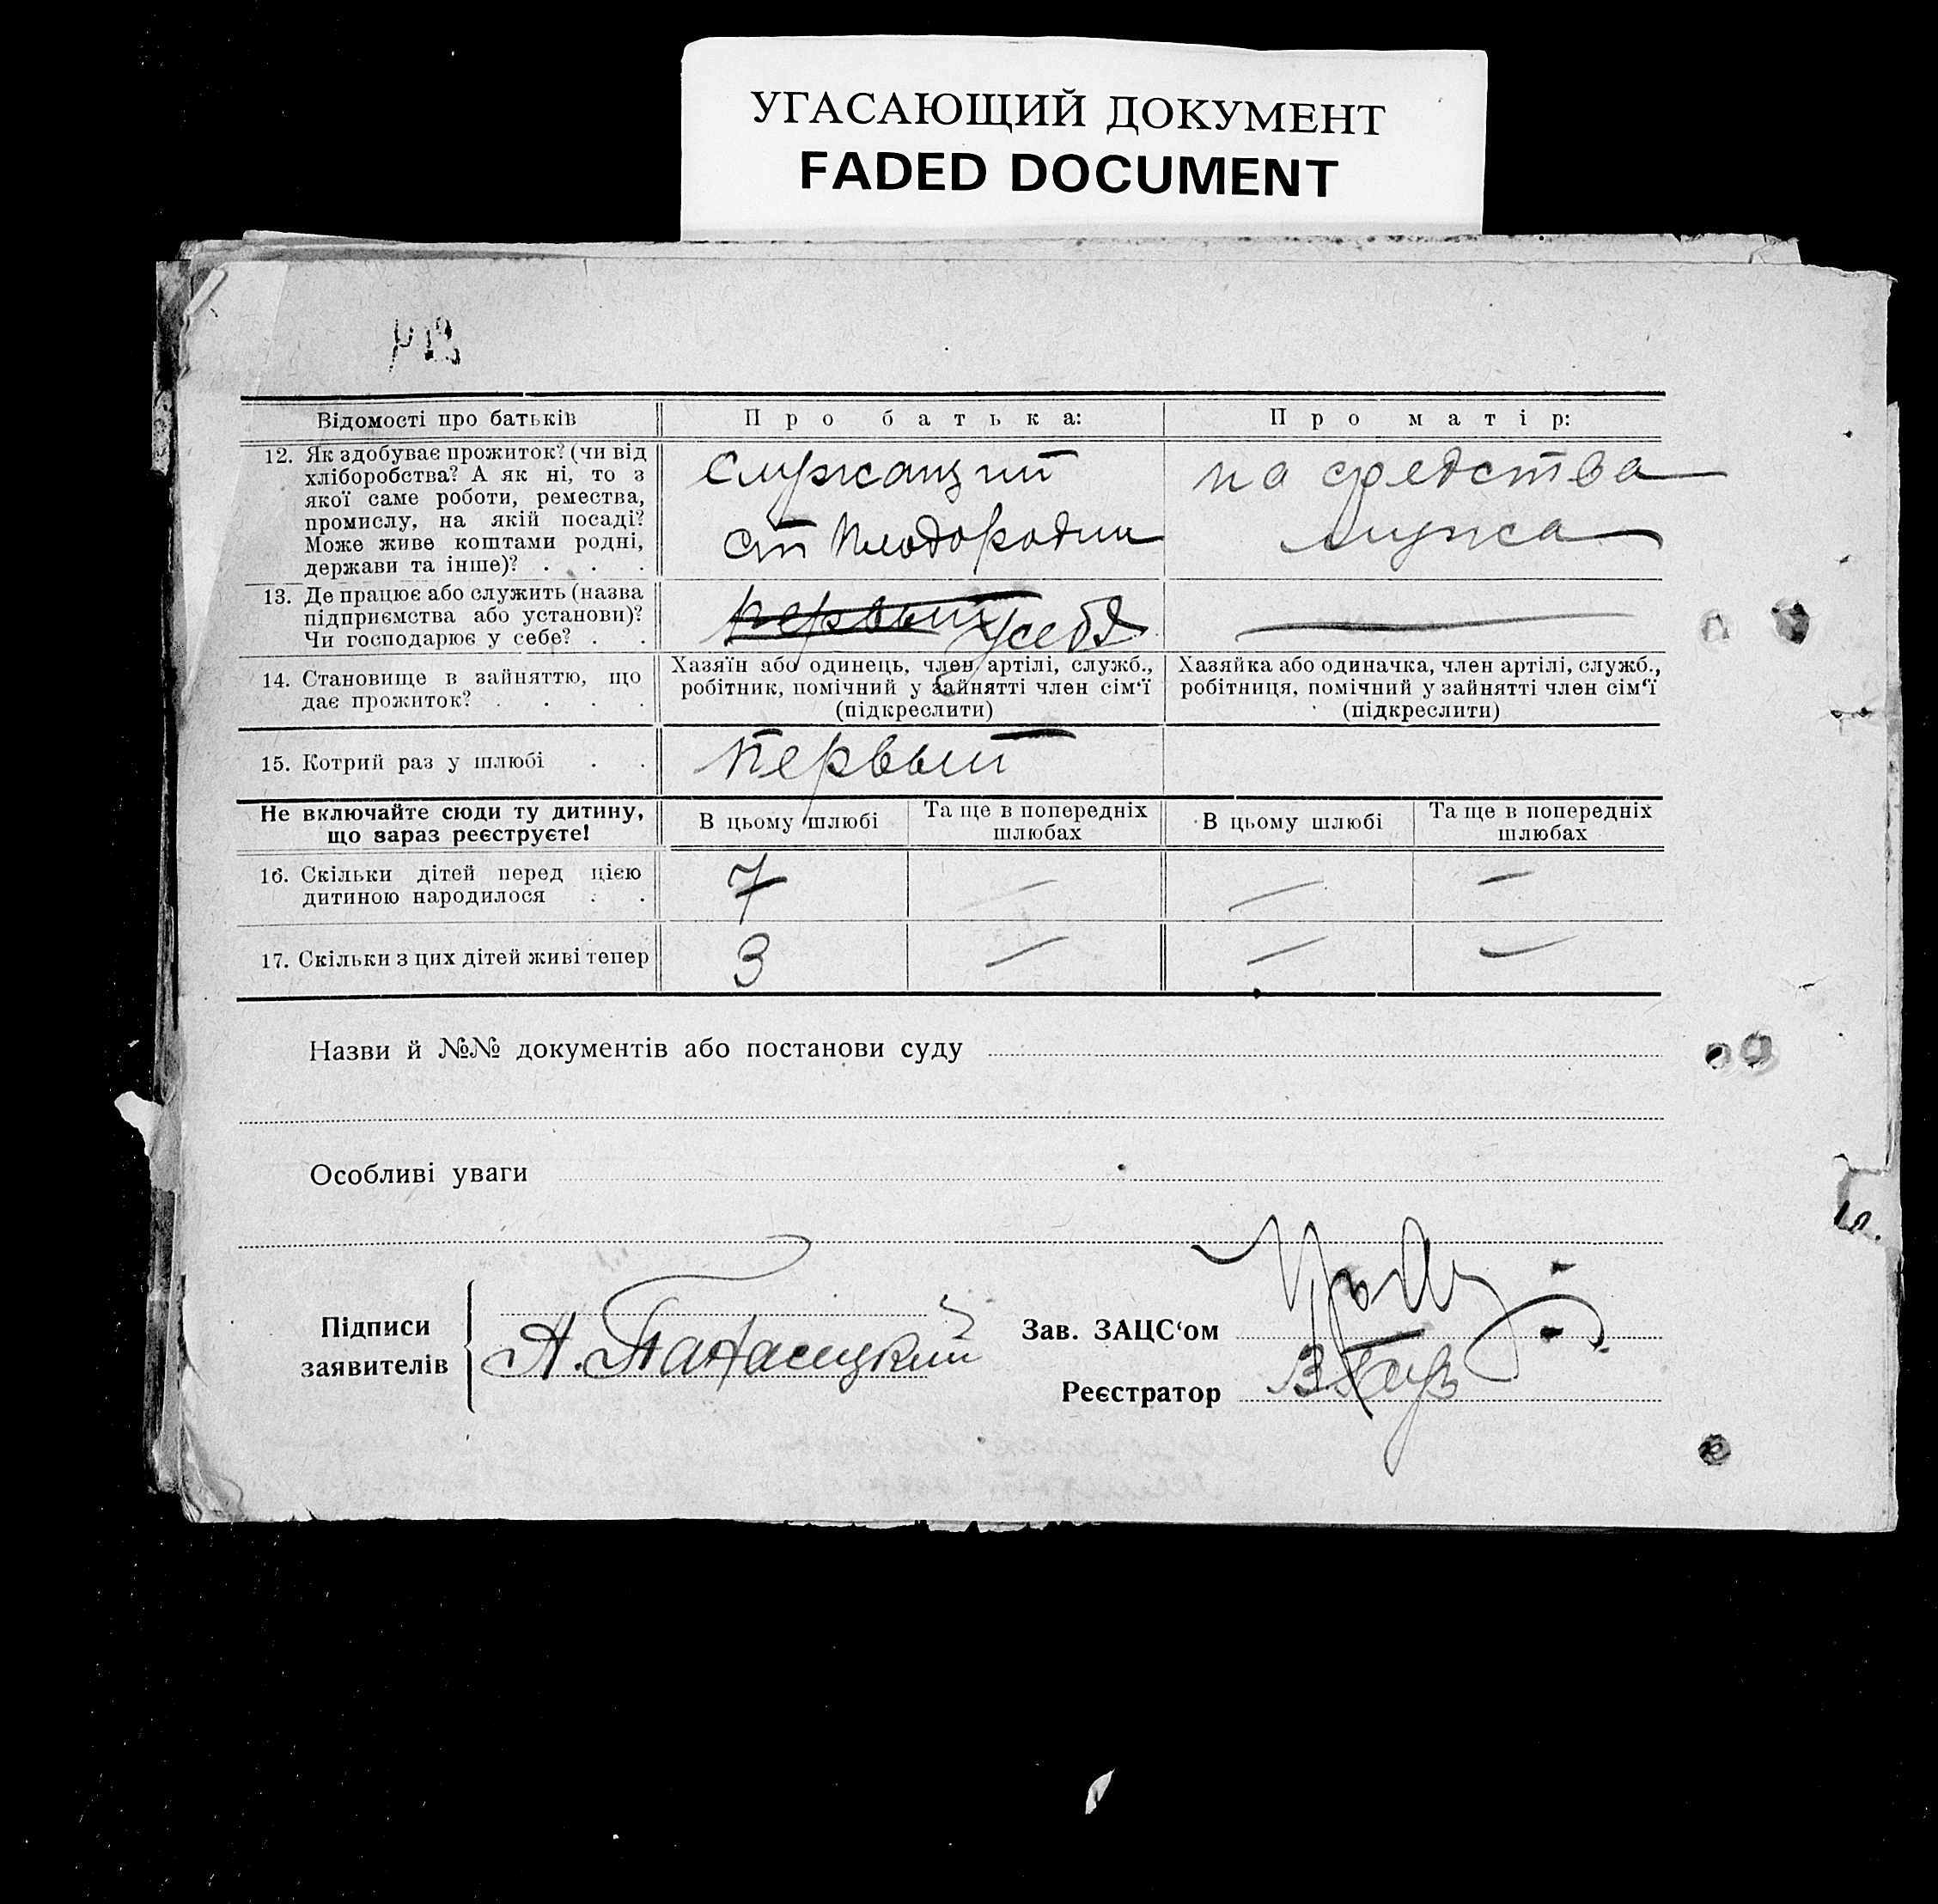 УГАСАЮЩИЙ ДОКУМЕНТ
FADED DOCUMENT
Відомості про батьків
Про батька:
Про матір:
12. Як здобуває прожиток? (чи від
хліборобства? А як ні, то з
якої саме роботи, ремества,
промислу, на якій посаді?
Може живе коштами родні,
держави та інше)? . . .
Служащий
ст Плодородин
на средства
мужа
13. Де працює або служить (назва
підприємства або установи)?
Чи господарює у себе? . .
первый у себя
14. Становище в зайняттю, що
дає прожиток? . . . .
Хазяїн або одинець, член артілі, служб.,
робітник, помічний у зайнятті член сім'ї
(підкреслити)
Хазяйка або одиначка, член артілі, служб.,
робітниця, помічний у зайнятті член сім'ї
(підкреслити)
15. Котрий раз у шлюбі . .
первый
Не включайте сюди ту дитину,
що зараз реєструєте!
В цьому шлюбі
Та ще в попередніх
шлюбах
В цьому шлюбі
Та ще в попередніх
шлюбах
16. Скільки дітей перед цією
дитиною народилося . .
7 — — —
17. Скільки з цих дітей живі тепер
3 — — —
Назви й №№ документів або постанови суду
Особливі уваги
Підписи
заявителів
А.
Зав. ЗАЦС'ом
Реєстратор